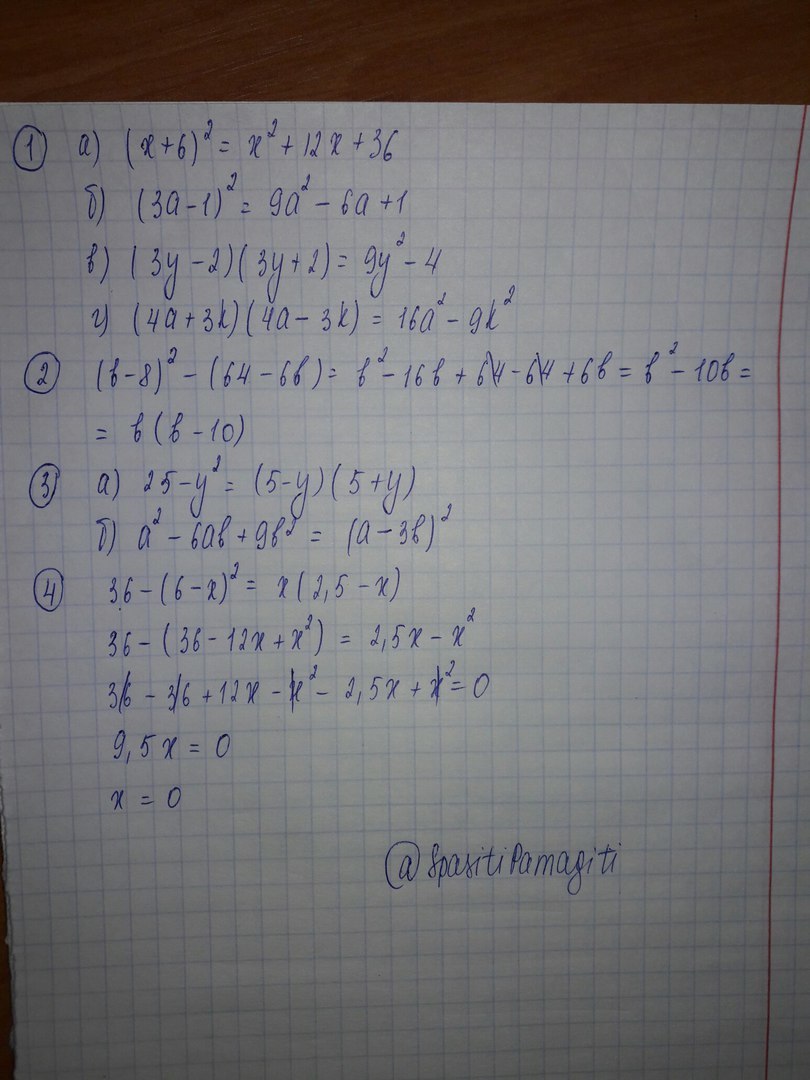 ① а) (x+6)² = x² + 12x + 36
б) (3a-1)² = 9a² - 6a + 1
в) (3y-2)(3y+2) = 9y² - 4
г) (4a+3k)(4a-3k) = 16a² - 9k²
② (b-8)² - (64-6b) = b² - 16b + 64 - 64 + 6b = b² - 10b =
= b(b-10)
③ а) 25-y² = (5-y)(5+y)
б) a² - 6ab + 9b² = (a-3b)²
④ 36-(6-x)² = x(2,5-x)
36-(36-12x+x²) = 2,5x - x²
36 - 36 + 12x - x² - 2,5x + x² = 0
9,5x = 0
x = 0
@SpasitiPamagiti